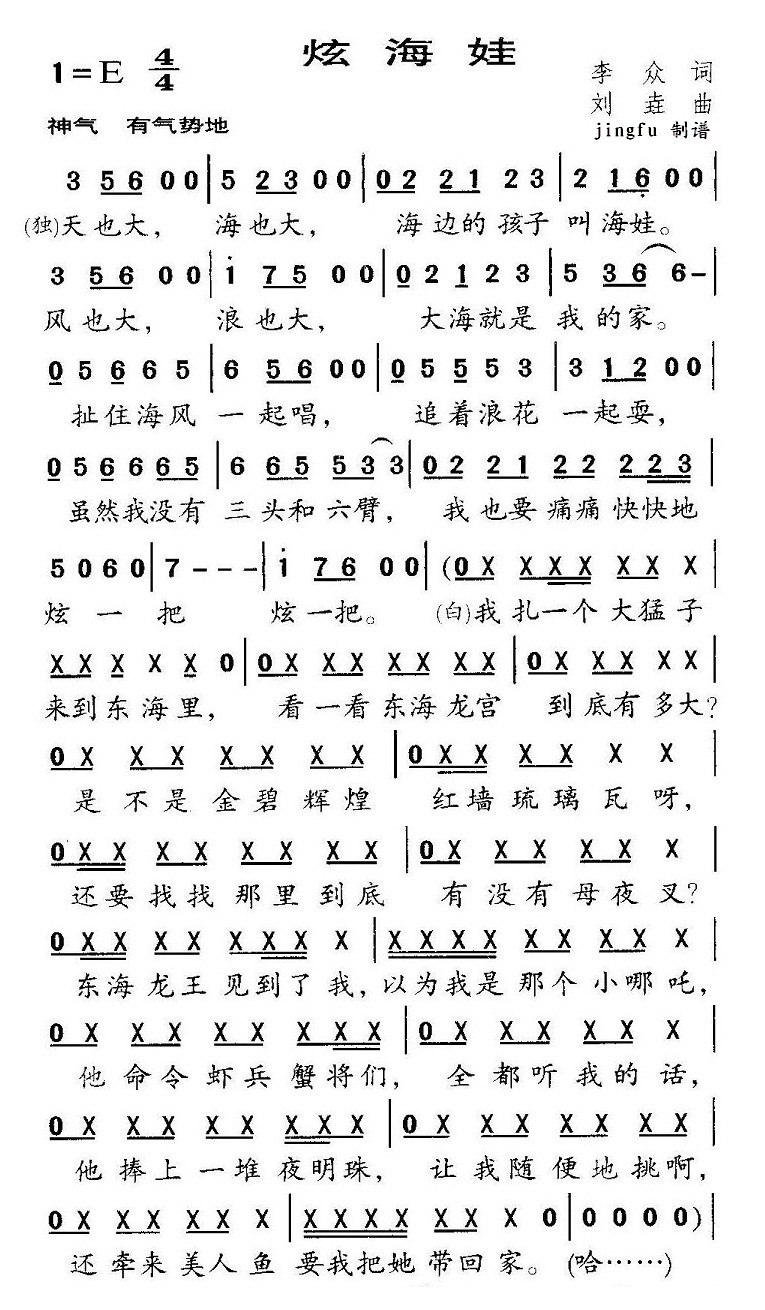 炫海娃
1=E 4/4
李众 词
刘垚 曲
神气 有气势地
jingfu 制谱
3 5 6 0 0 | 5 2 3 0 0 | 0 2 2 1 2 3 | 2 1 6 0 0 |
(独)天也大， 海也大， 海边的孩子 叫海娃。
3 5 6 0 0 | i 7 5 0 0 | 0 2 1 2 3 | 5 3 6 6 - |
风也大， 浪也大， 大海就是 我的家。
0 5 6 6 5 | 6 5 6 0 0 | 0 5 5 5 3 | 3 1 2 0 0 |
扯住海风 一起唱， 追着浪花 一起耍，
0 5 6 6 6 5 | 6 6 5 5 3 3 | 0 2 2 1 2 2 2 2 3 |
虽然我没有 三头和六臂， 我也要痛痛快快地
5 0 6 0 | 7 - - - | i 7 6 0 0 | (0 X X X X X X
炫一把 炫一把。 (白)我扎一个大猛子
X X X X X 0 | 0 X X X X X X X | 0 X X X X X |
来到东海里， 看一看东海龙宫 到底有多大？
0 X X X X X X X | 0 X X X X X X |
是不是金碧辉煌 红墙琉璃瓦呀，
0 X X X X X X X X | 0 X X X X X X |
还要找找那里到底 有没有母夜叉？
0 X X X X X X X X | X X X X X X X X X |
东海龙王见到了我，以为我是那个小哪吒，
0 X X X X X X X X | 0 X X X X X X |
他命令虾兵蟹将们， 全都听我的话，
0 X X X X X X X X | 0 X X X X X X X |
他捧上一堆夜明珠， 让我随便地挑啊，
0 X X X X X | X X X X X X X 0 | 0 0 0 0 )
还牵来美人鱼 要我把她带回家。(哈……)